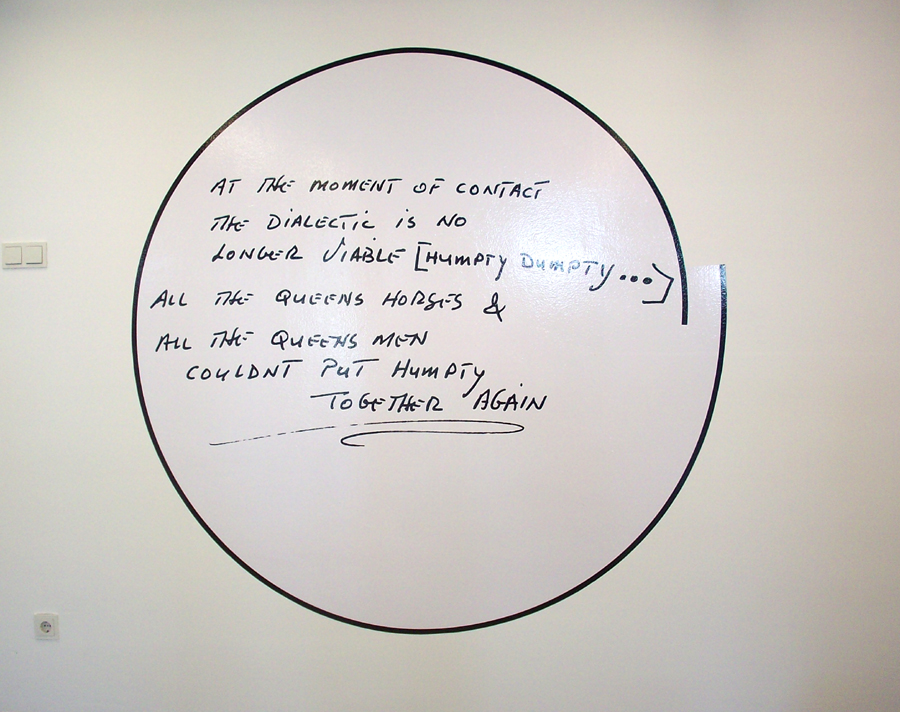 AT THE MOMENT OF CONTACT
THE DIALECTIC IS NO
LONGER VIABLE [HUMPTY DUMPTY...]
ALL THE QUEENS HORSES &
ALL THE QUEENS MEN
COULDNT PUT HUMPTY
TOGETHER AGAIN